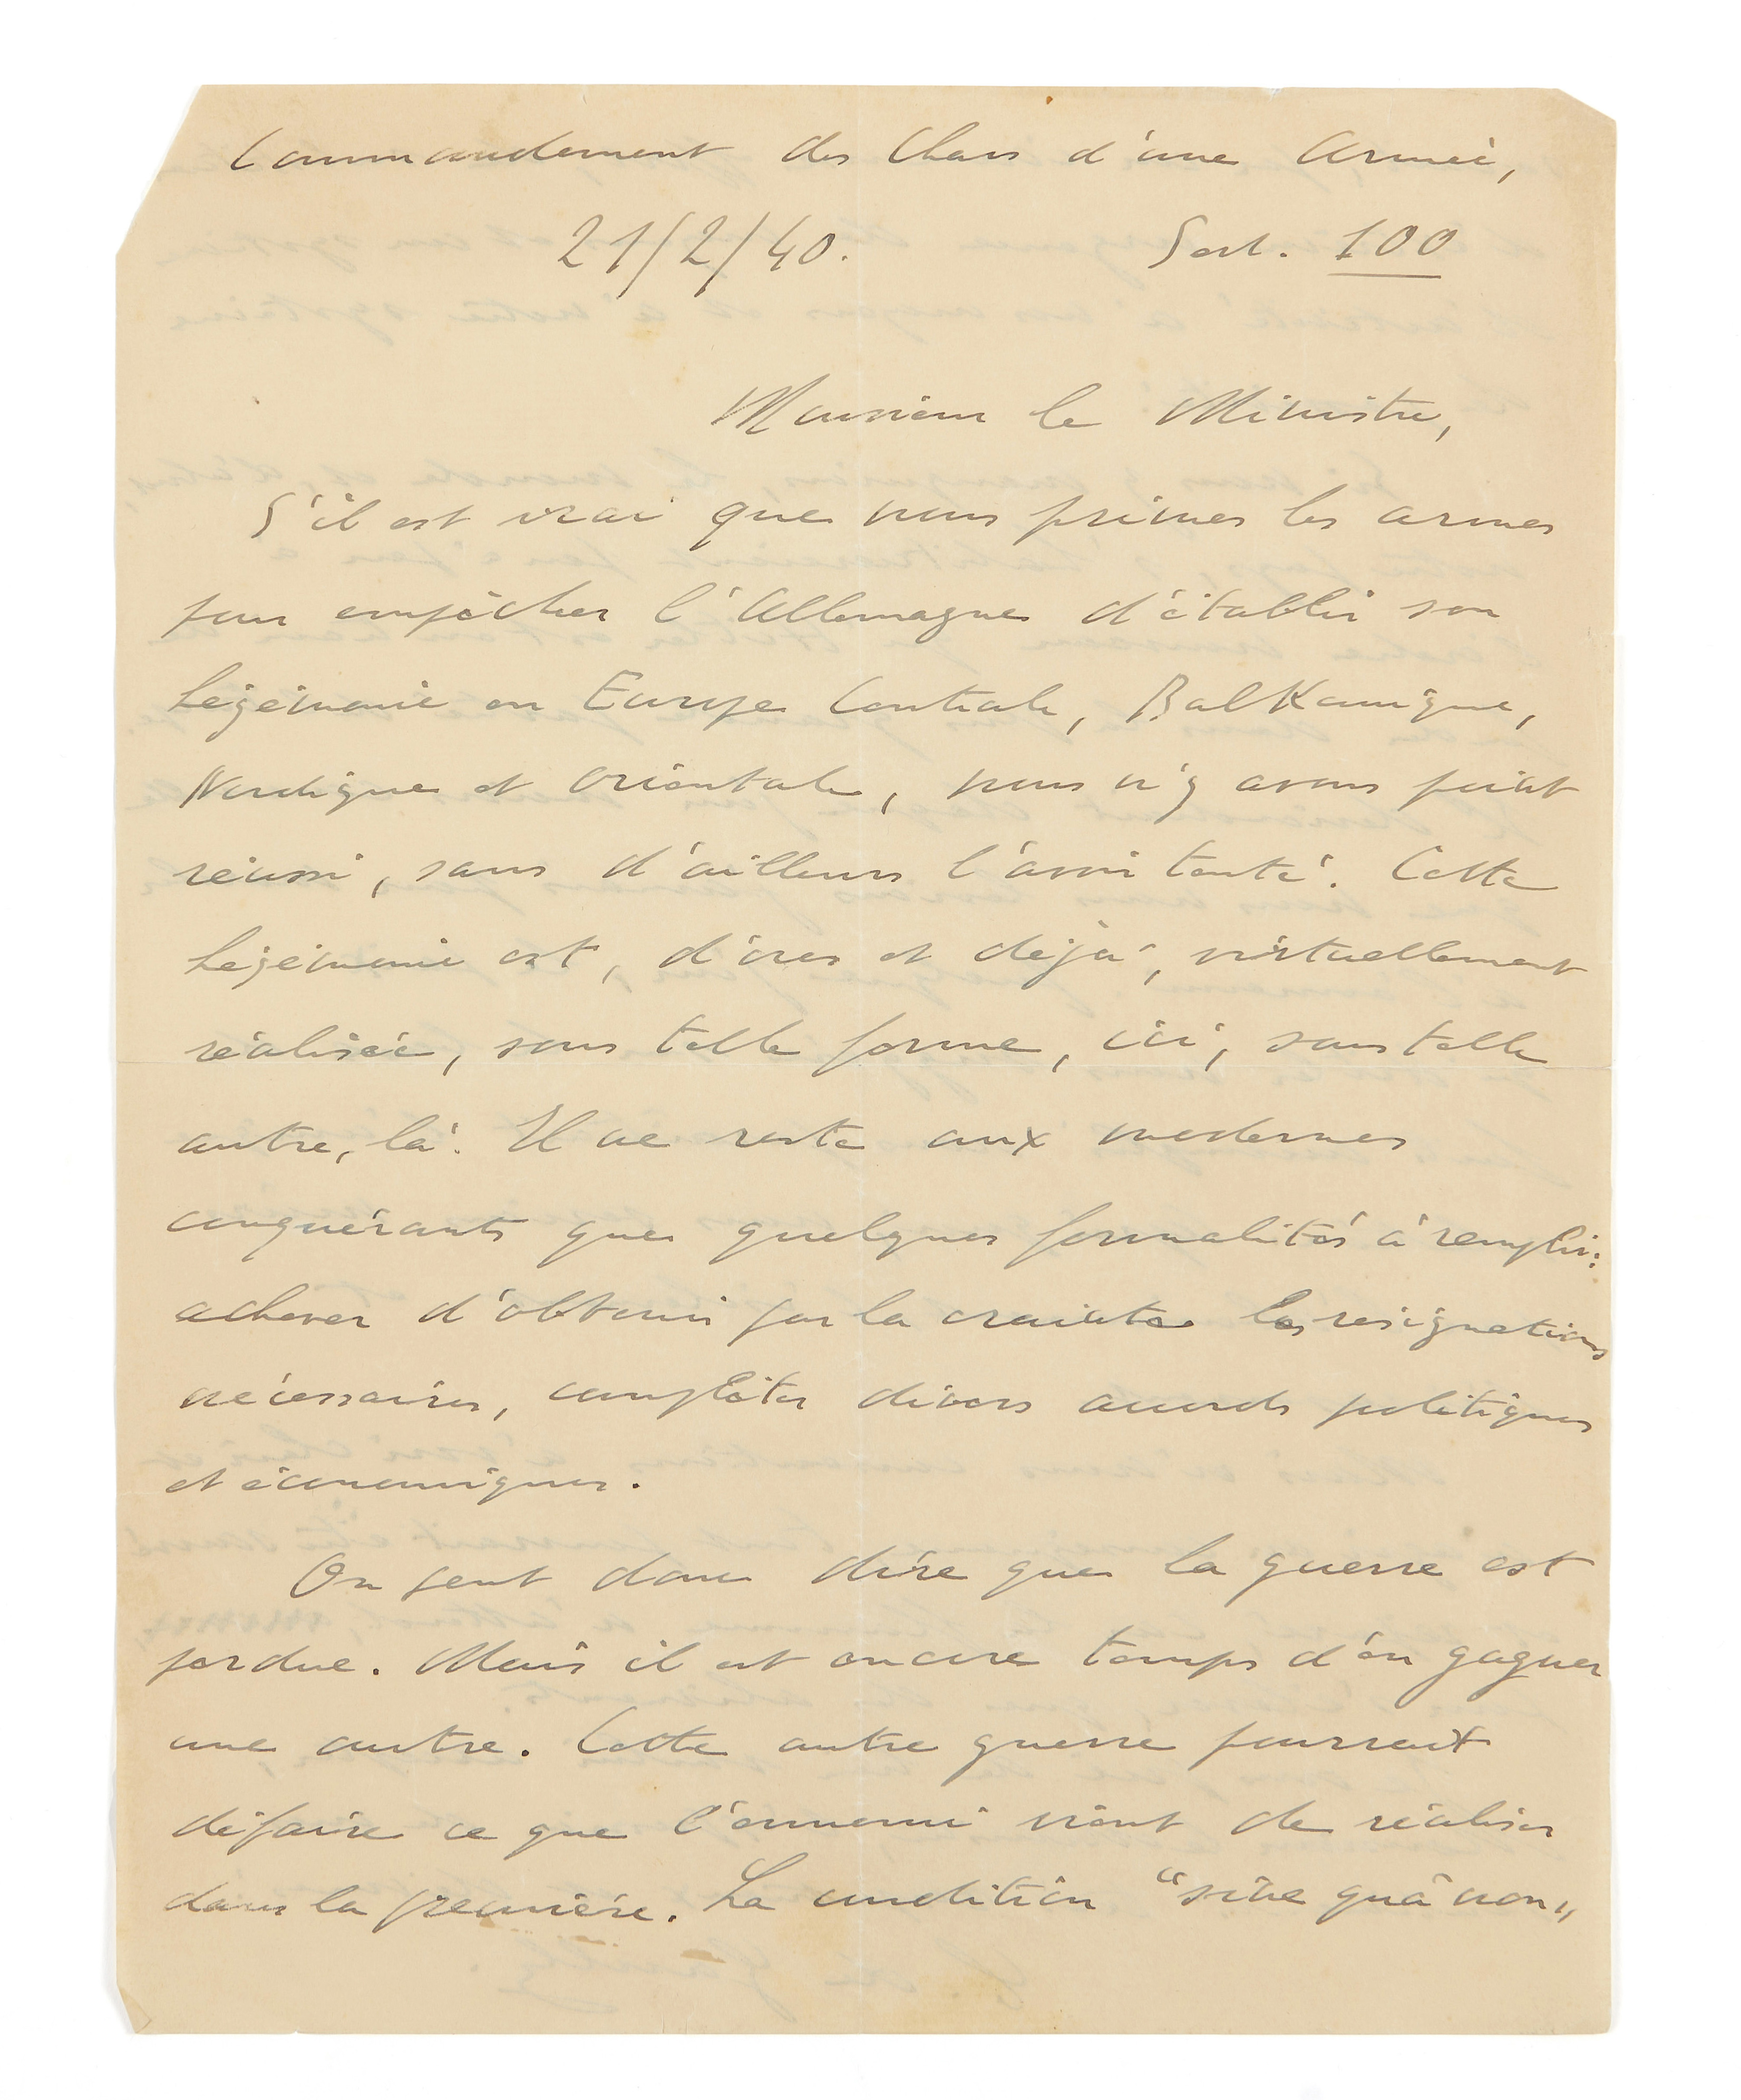 Commandement des Chars d'une Armée,
21/2/40. Sect. 100
Monsieur le Ministre,
S'il est vrai que nous prîmes les armes
pour empêcher l'Allemagne d'établir son
hégémonie en Europe Centrale, Balkanique,
Nordique et Orientale, nous n'y avons point
réussi, sans d'ailleurs l'avoir tenté. Cette
hégémonie est, d'ores et déjà, virtuellement
réalisée, sous telle forme, ici, sous telle
autre, là. Il ne reste aux modernes
conquérants que quelques formalités à remplir:
achever d'obtenir par la crainte les résignations
nécessaires, compléter divers accords politiques
et économiques.
On peut donc dire que la guerre est
perdue. Mais il est encore temps d'en gagner
une autre. Cette autre guerre pourrait
défaire ce que l'ennemi vient de réaliser
dans la première. La condition "sine quâ non"